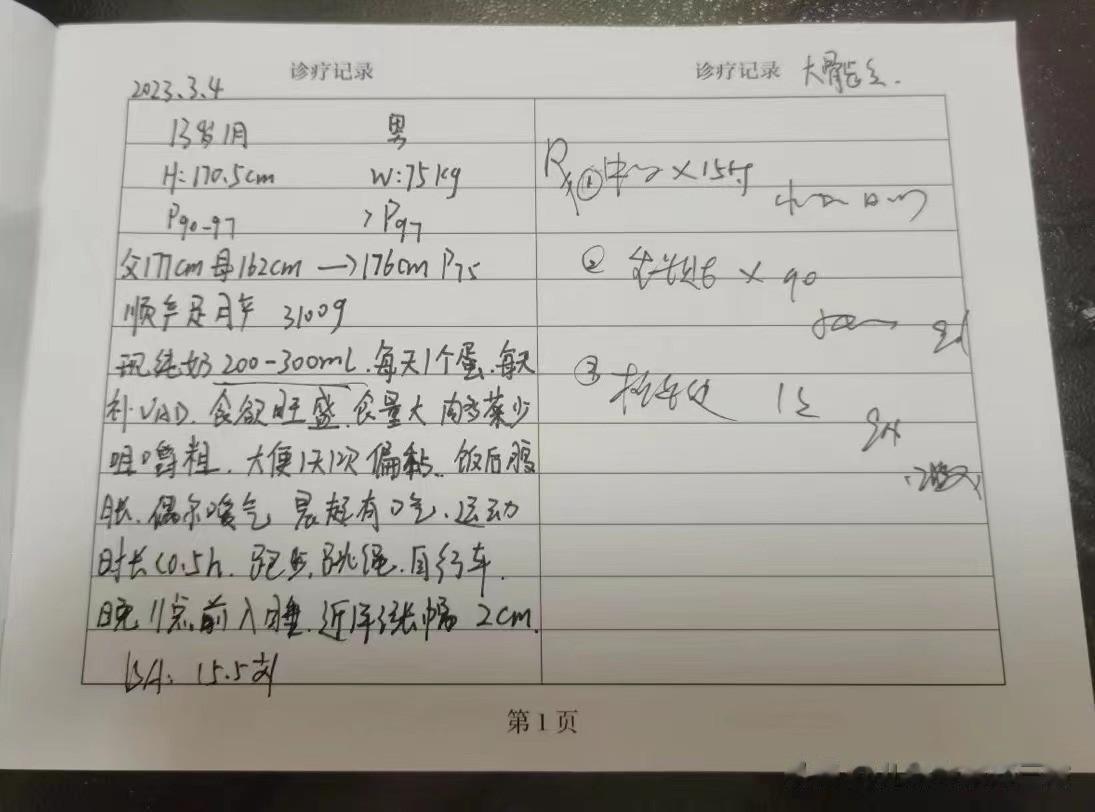 诊疗记录
2023.3.4
13岁1月 男
H:170.5cm W:75kg
P90-97 >P97
父177cm 母162cm →176cm P75
顺产足月产 3100g
现纯奶 200-300mL.每天1个蛋.每天
补VAD.食欲旺盛.食量大 肉多菜少
咀嚼粗.大便1天1次 偏黏.饭后腹
胀.偶尔嗳气 晨起有口气.运动
时长<0.5h.跑步.跳绳.自行车.
晚11点前入睡.近1年涨幅 2cm.
BA: 15.5岁
诊疗记录
R
① ×15付
② × 90
③
第1页